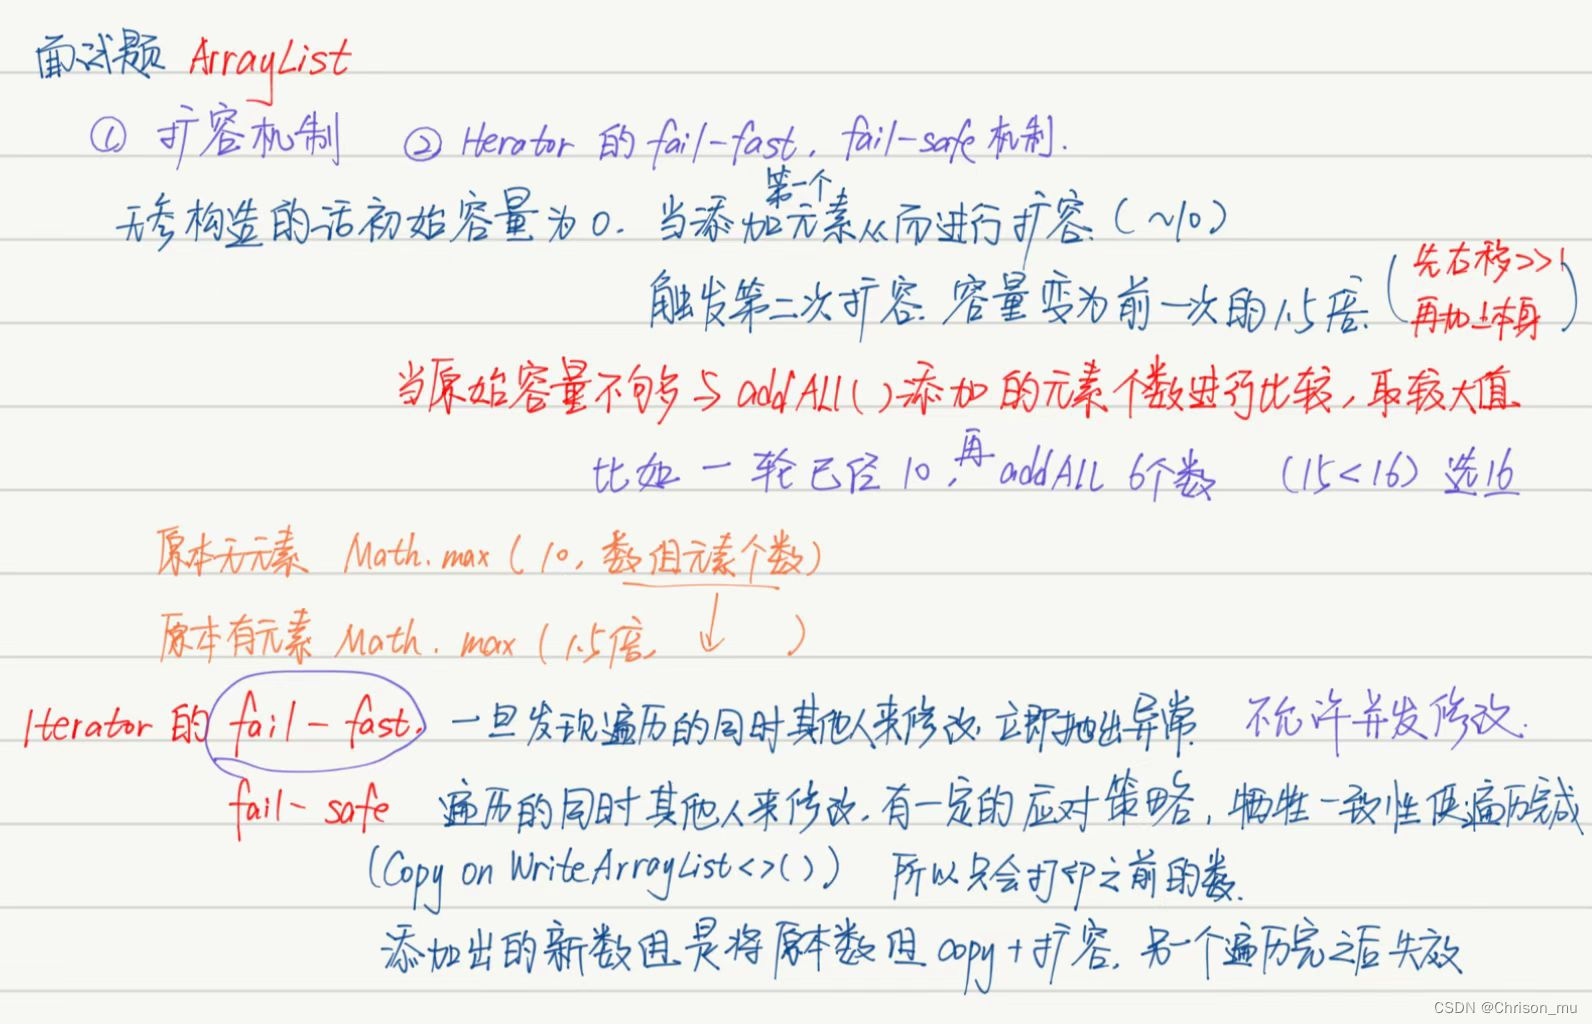 面试题 ArrayList
① 扩容机制 ② Iterator 的 fail-fast, fail-safe 机制.
无参构造的话初始容量为0. 当添加第一个元素从而进行扩容.(~10)
触发第二次扩容. 容量变为前一次的1.5倍.(先右移>>1 再加上本身)
当原始容量不够多与 addALL()添加的元素个数进行比较, 取较大值.
比如一轮已经10, 再addALL 6个数 (15<16) 选16
原本无元素 Math.max(10, 数组元素个数)
原本有元素 Math.max(1.5倍, ↓ )
Iterator 的 fail-fast. 一旦发现遍历的同时其他人来修改, 立即抛出异常. 不允许并发修改.
fail-safe 遍历的同时其他人来修改. 有一定的应对策略, 牺牲一致性使遍历完成
(Copy on WriteArrayList<>()) 所以只会打印之前的数.
添加出的新数组是将原本数组copy+扩容. 另一个遍历完之后失效
CSDN @Chrison_mu